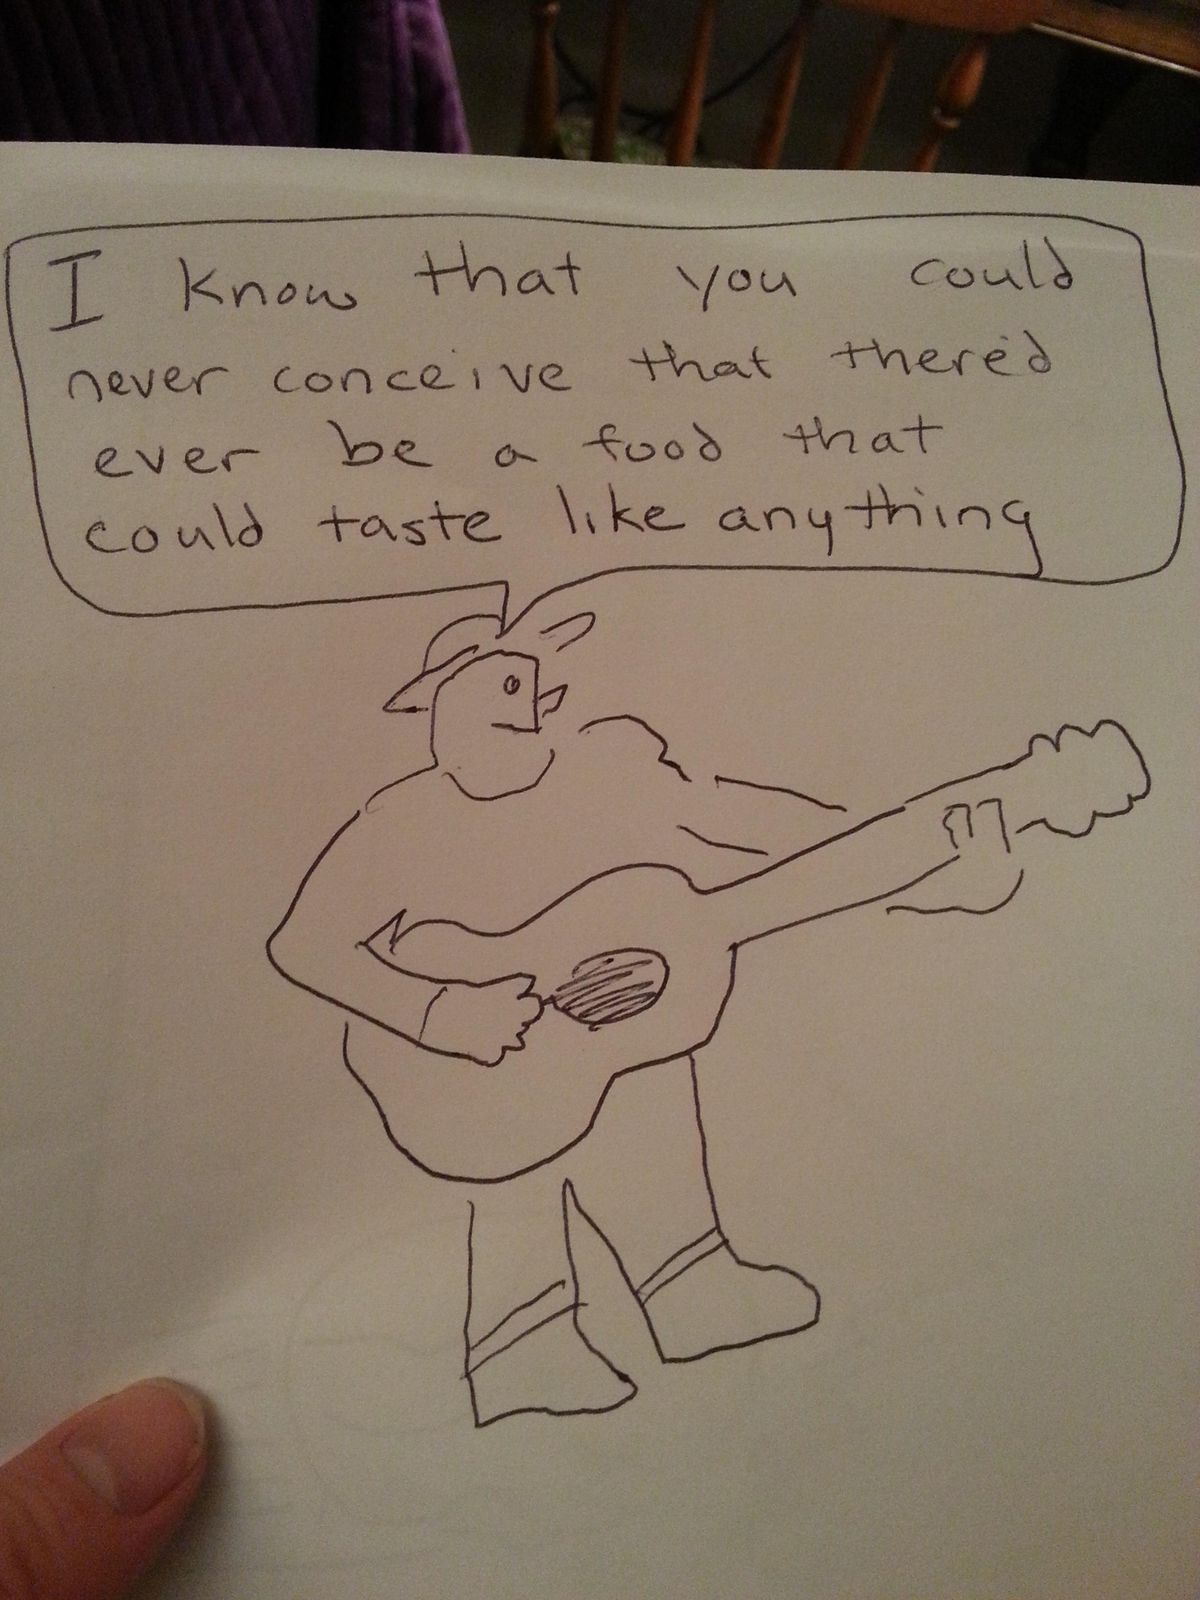 I know that you could
never conceive that there'd
ever be a food that
could taste like anything